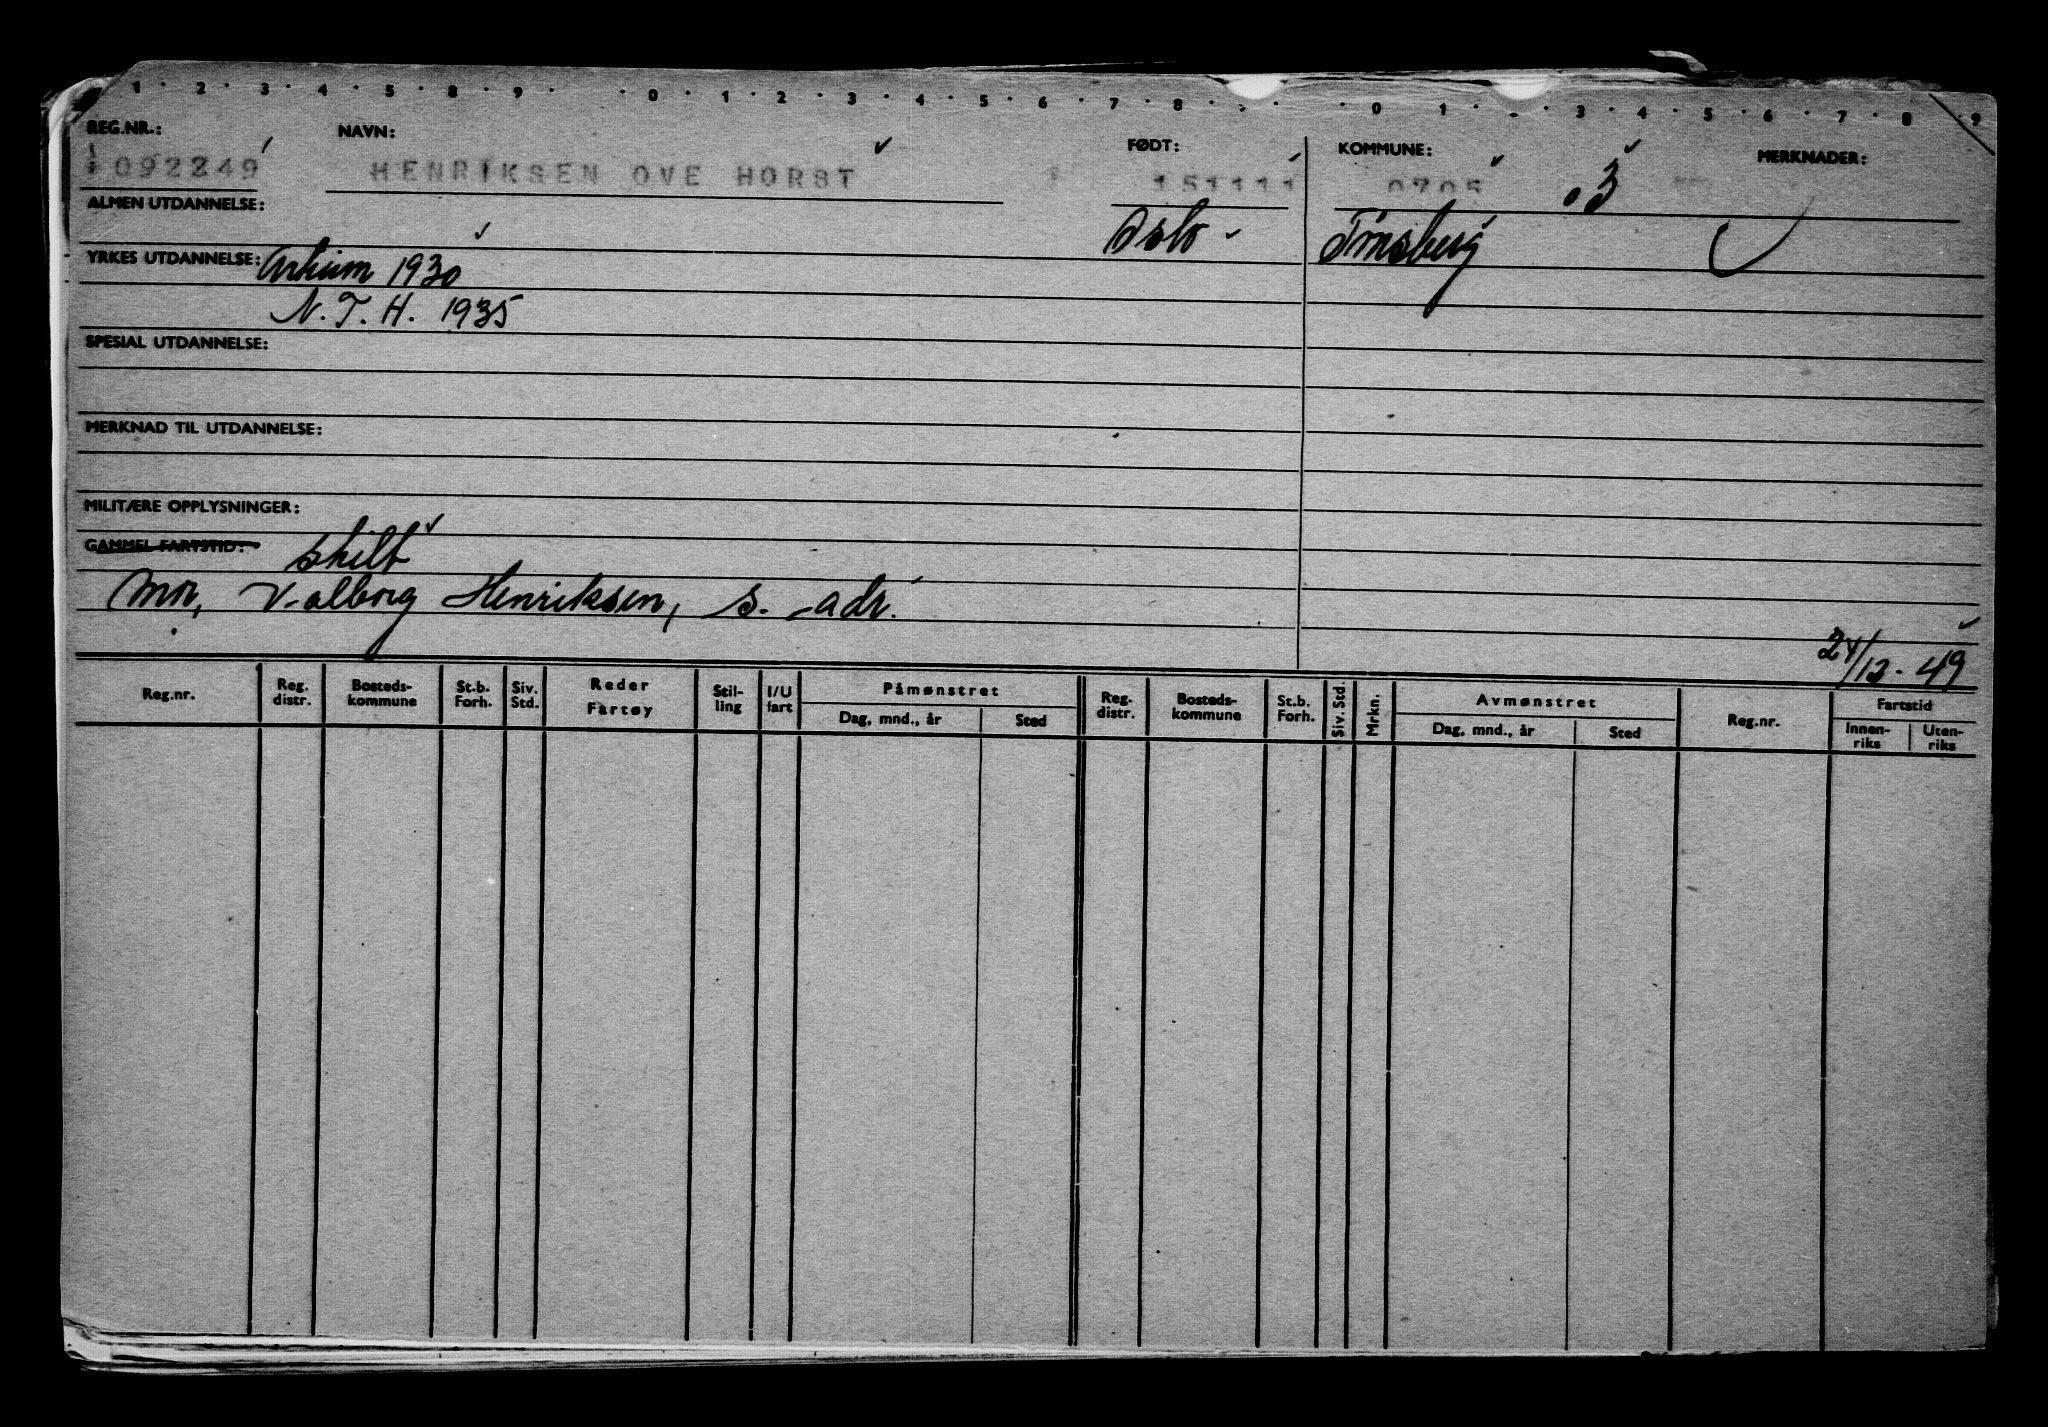 1 · 2 · 3 · 4 · 5 · 8 · 9 · · 0 · 1 · 2 · 3 · 4 · 5 · 6 · 7 · 8 · · 0 · 1 · · 3 · 4 · 5 · 6 · 7 · 8 · 9
REG.NR.: NAVN: FØDT: KOMMUNE: MERKNADER:
092249 HENRIKSEN OVE HORST 151111 0705 .3
ALMEN UTDANNELSE: Oslo Tønsberg
YRKES UTDANNELSE: 1930
N. T. H. 1935
SPESIAL UTDANNELSE:
MERKNAD TIL UTDANNELSE:
MILITÆRE OPPLYSNINGER:
GAMMEL FARTSTID: skilt
Mor, Valborg Henriksen, s. adr.
24/12-49
Reg.nr. Reg. distr. Bosteds-kommune St.b. Forh. Siv. Std. Reder Fartøy Stil-ling I/U fart Påmønstret Reg. distr. Bosteds-kommune St.b. Forh. Siv. Std. Mrkn. Avmønstret Reg.nr. Fartstid
Dag, mnd., år Sted Dag, mnd., år Sted Innen-riks Uten-riks